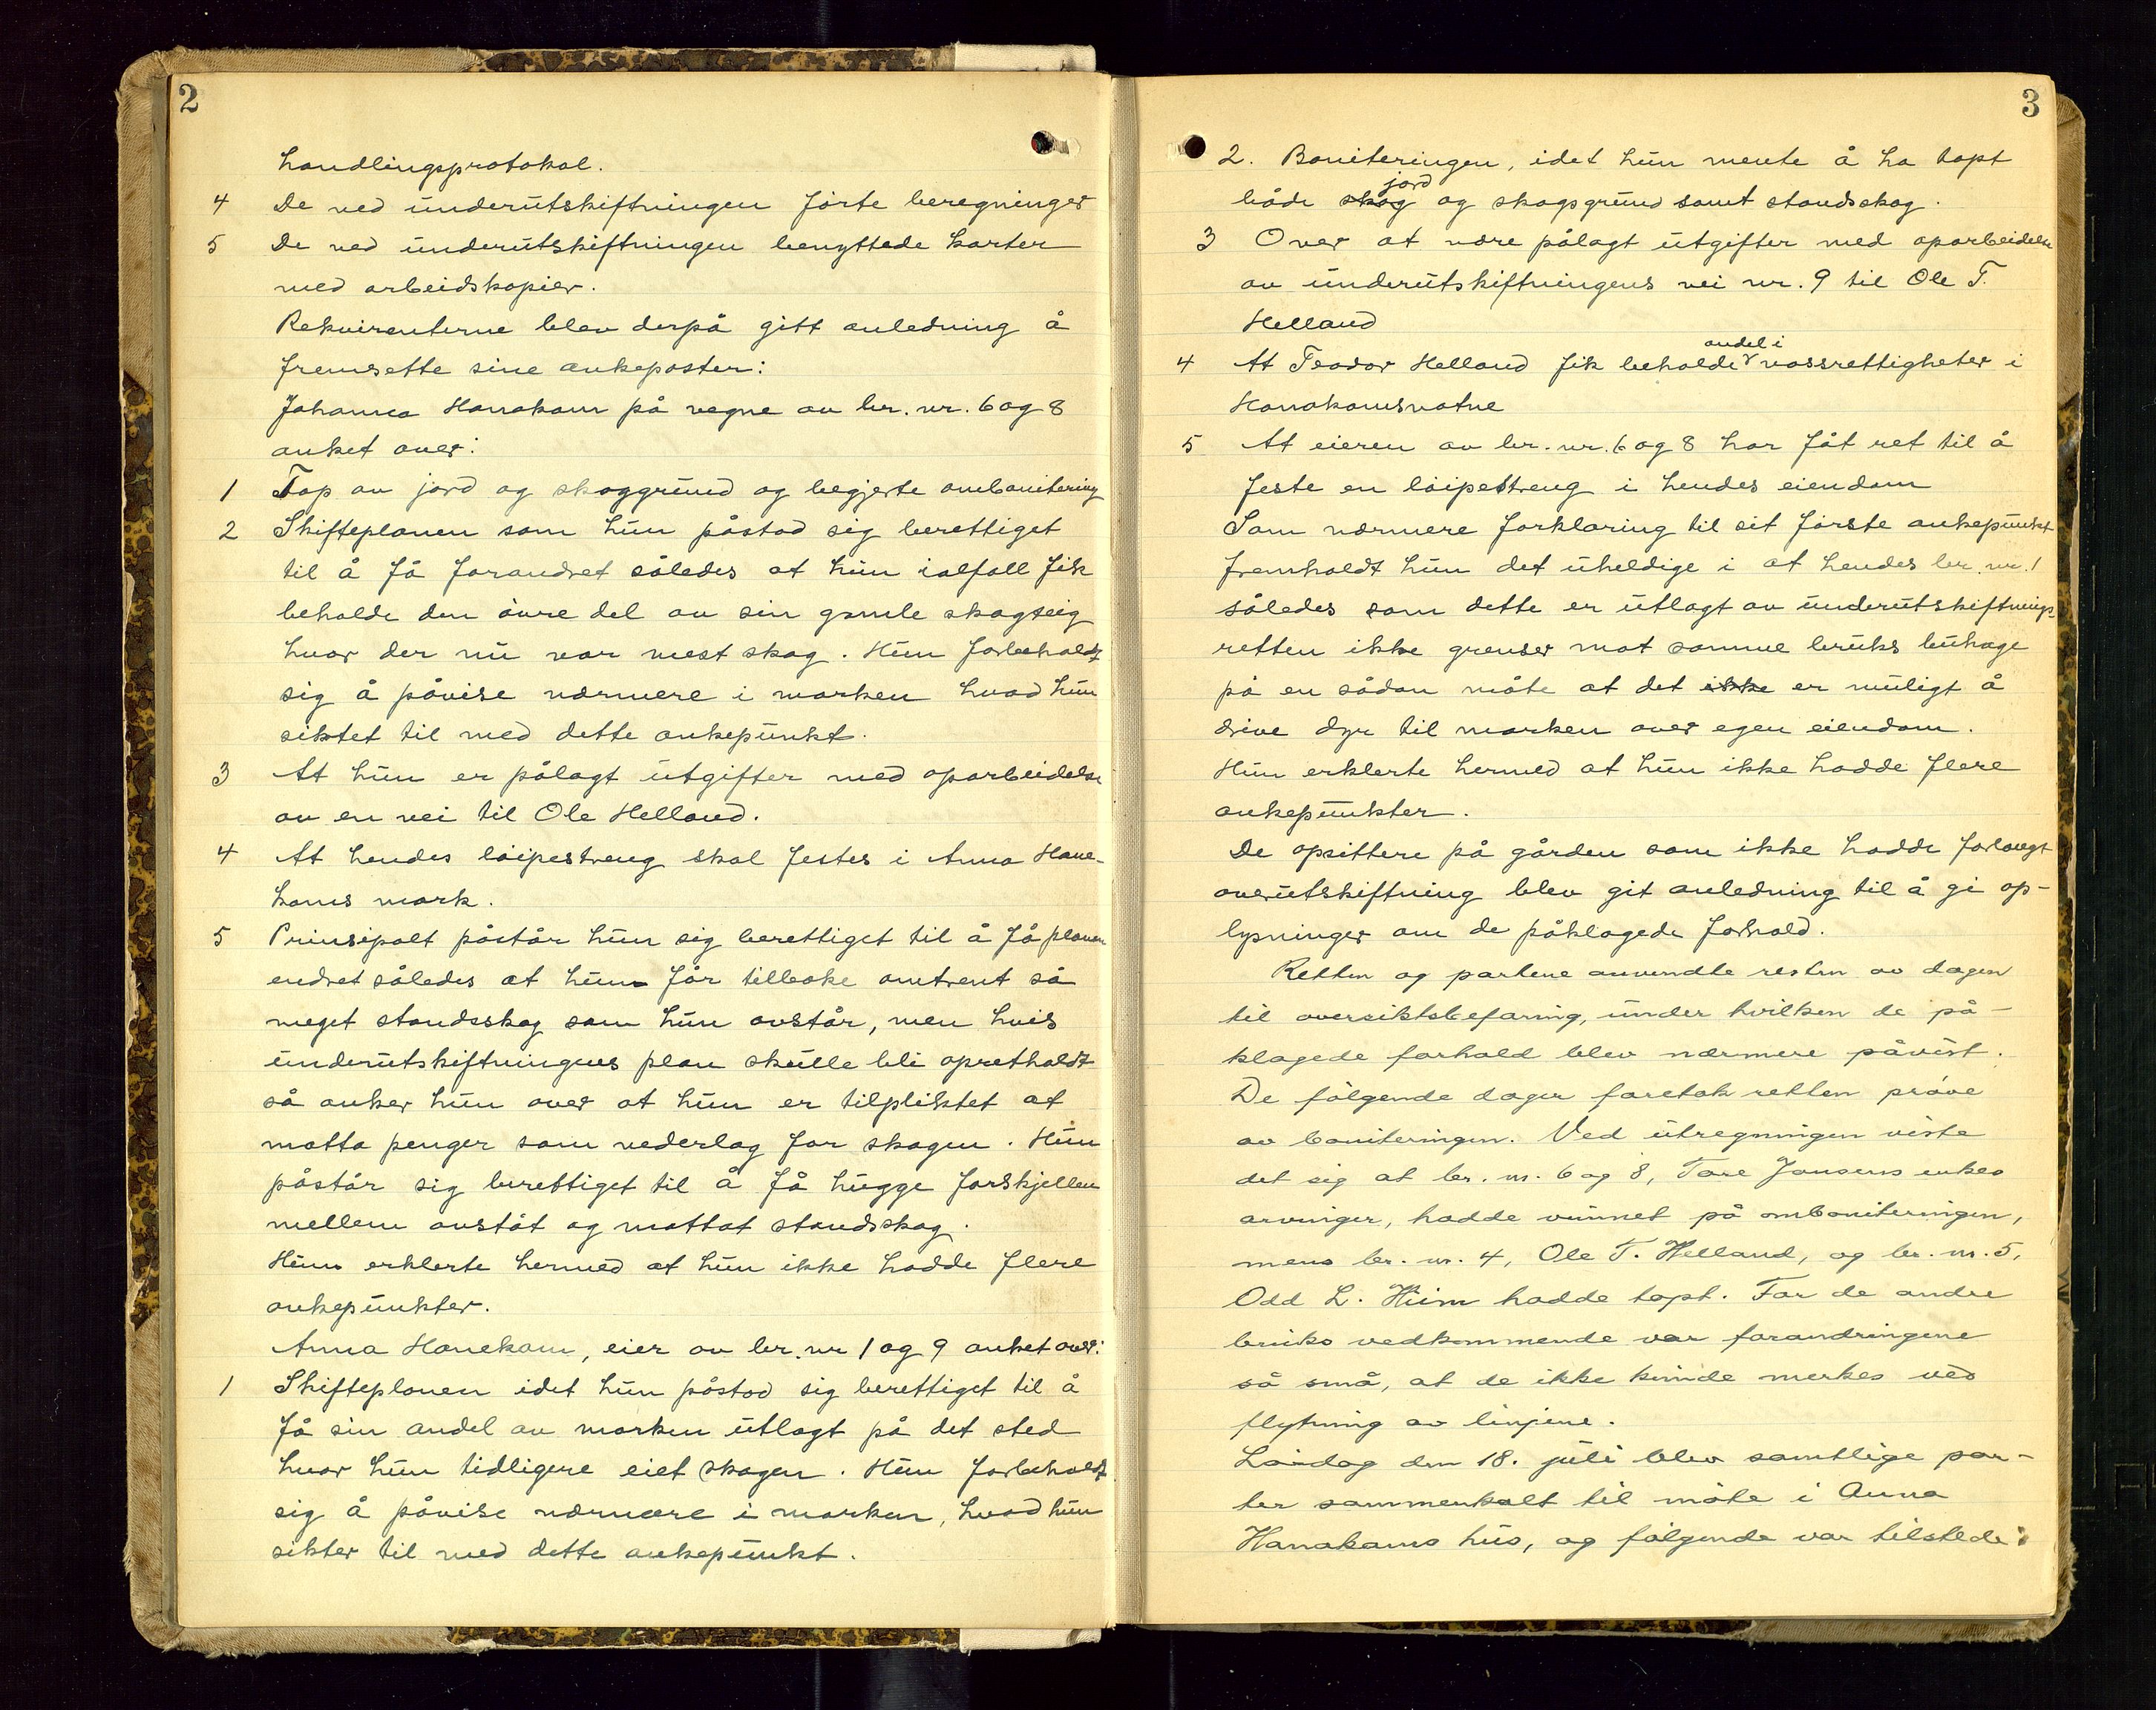 2
handlingsprotokol.
4 De ved underutskiftningen førte beregninger
5 De ved underutskiftningen benyttede karter
med arbeidskopier.
Rekvirenterne blev derpå gitt anledning å
fremsette sine ankeposter:
Johanna Hanakam på vegne av br. nr. 6 og 8
anket over:
1 Tap av jord og skoggrund og begjerte ombonitering
2 Skifteplanen som hun påstod sig berettiget
til å få forandret således at hun ialfall fik
beholde den øvre del av sin gamle skogteig
hvor der nu var mest skog. Hun forbeholdt
sig å påvise nærmere i marken hvad hun
siktet til med dette ankepunkt.
3 At hun er pålagt utgifter med oparbeidelse
av en vei til Ole Helland.
4 At hendes løipestreng skal festes i Anna Hane-
kams mark.
5 Prinsipalt påstår hun sig berettiget til å få planen
endret således at hun får tilbake omtrent så
meget standsskog som hun avstår, men hvis
underutskiftningens plan skulle bli oprettholdt
så anker hun over at hun er tilpliktet at
motta penger som vederlag for skogen. Hun
påstår sig berettiget til å få hugge forskjellen
mellem avståt og mottat standsskog.
Hun erklerte hermed at hun ikke hadde flere
ankepunkter.
Anna Hanekam, eier av br. nr 1 og 9 anket over:
1 Skifteplanen idet hun påstod sig berettiget til å
få sin andel av marken utlagt på det sted
hvor hun tidligere eiet skogen. Hun forbeholdt
sig å påvise nærmere i marken, hvad hun
sikter til med dette ankepunkt.
3
2. Boniteringen, idet hun mente å ha tapt
jord
både skog og skogsgrund samt standsskog.
3 Over at være pålagt utgifter med oparbeidelse
av underutskiftningens vei nr. 9 til Ole T.
Helland
andel i
4 At Teodor Helland fik beholde vassrettigheter i
Hanakamsvatne
5 At eieren av br. nr. 6 og 8 har fåt ret til å
feste en løipestreng i hendes eiendom
Som nærmere forklaring til sit første ankepunkt
fremholdt hun det uheldige i at hendes br. nr. 1
således som dette er utlagt av underutskiftnings-
retten ikke grenser mot samme bruks buhage
på en sådan måte at det ikke er muligt å
drive dyr til marken over egen eiendom.
Hun erklerte hermed at hun ikke hadde flere
ankepunkter.
De opsittere på gården som ikke hadde forlangt
overutskiftning blev git anledning til å gi op-
lysninger om de påklagede forhold.
Retten og partene anvendte resten av dagen
til oversiktsbefaring, under hvilken de på-
klagede forhold blev nærmere påvist.
De følgende dager foretok retten prøve
av boniteringen. Ved utregningen viste
det sig at br. nr. 6 og 8, Tore Jansens enkes
arvinger, hadde vunnet på omboniteringen,
mens br. nr. 4, Ole T. Helland, og br. nr. 5,
Odd L. Hiim hadde tapt. For de andre
bruks vedkommende var forandringene
så små, at de ikke kunde merkes ved
flytning av linjene.
Lørdag den 18. juli blev samtlige par-
ter sammenkalt til møte i Anna
Hanakams hus, og følgende var tilstede: